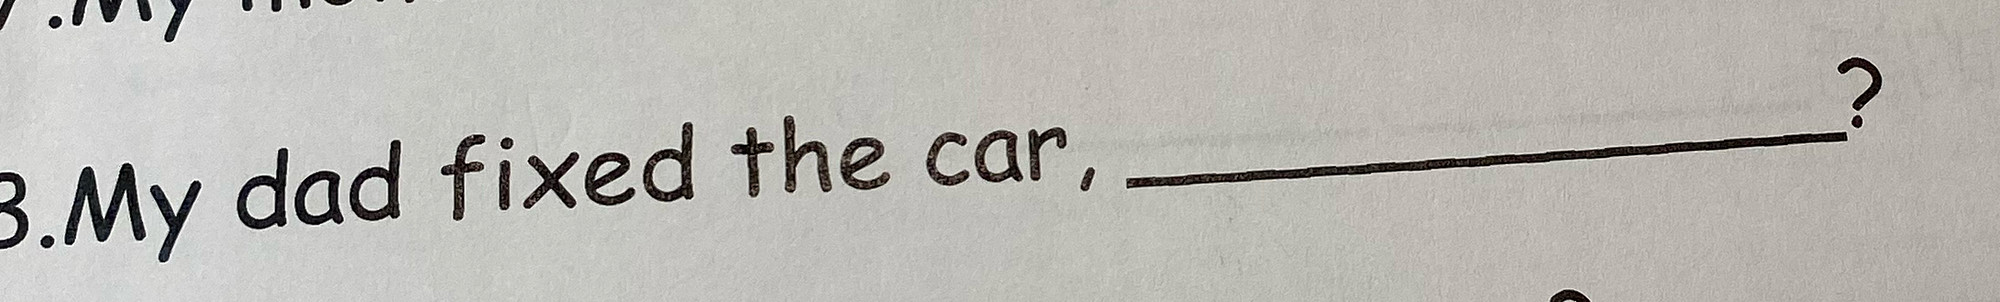 .My
3.My dad fixed the car, ?